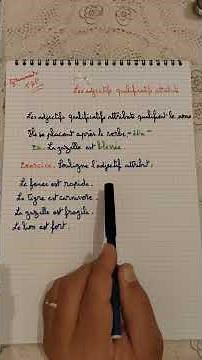 Grammaire
Les adjectifs qualificatifs attributs
Les adjectifs qualificatifs attributs qualifient le nom
Ils se placent après le verbe "être"
Ex: La gazelle est blessée
Exercice: Souligne l'adjectif attribut:
Le fennec est rapide.
Le tigre est carnivore.
La gazelle est fragile.
Le lion est fort.